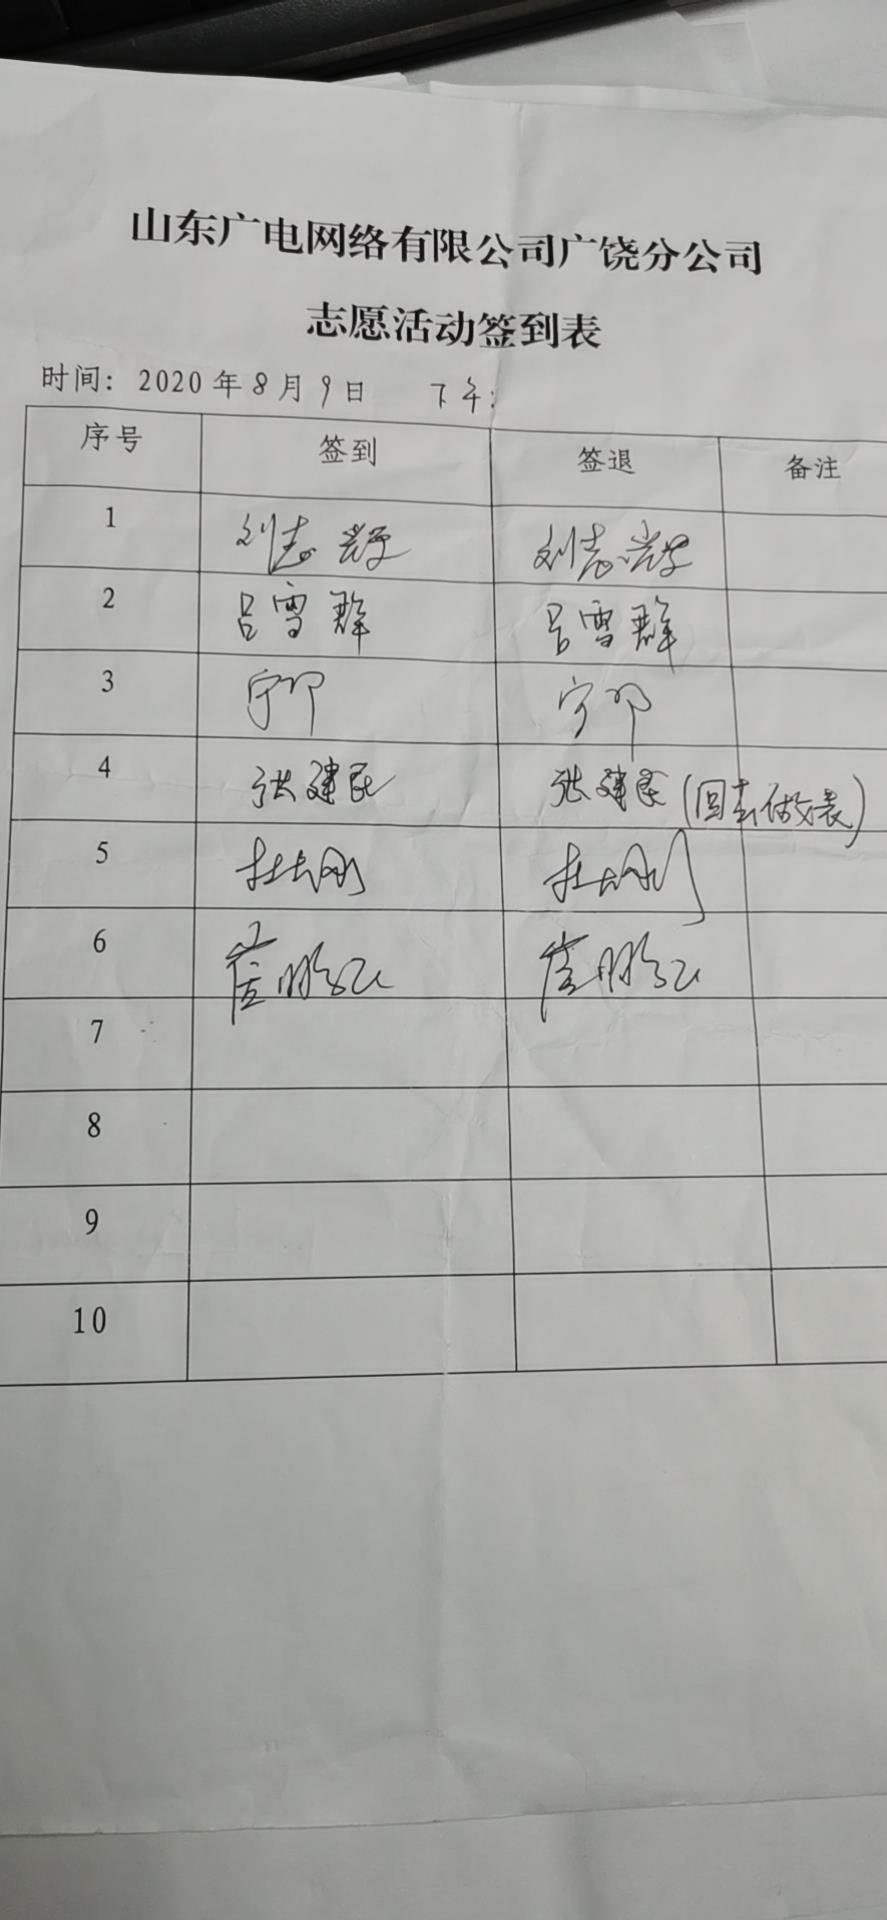 山东广电网络有限公司广饶分公司
志愿活动签到表
时间: 2020年8月9日 下午:
序号 签到 签退 备注
1 刘志 刘志
2 吕雪群 吕雪群
3 宁 宁
4 张建民 张建民 (回去做表)
5 杜刚 杜刚
6 崔鹏 崔鹏
7
8
9
10